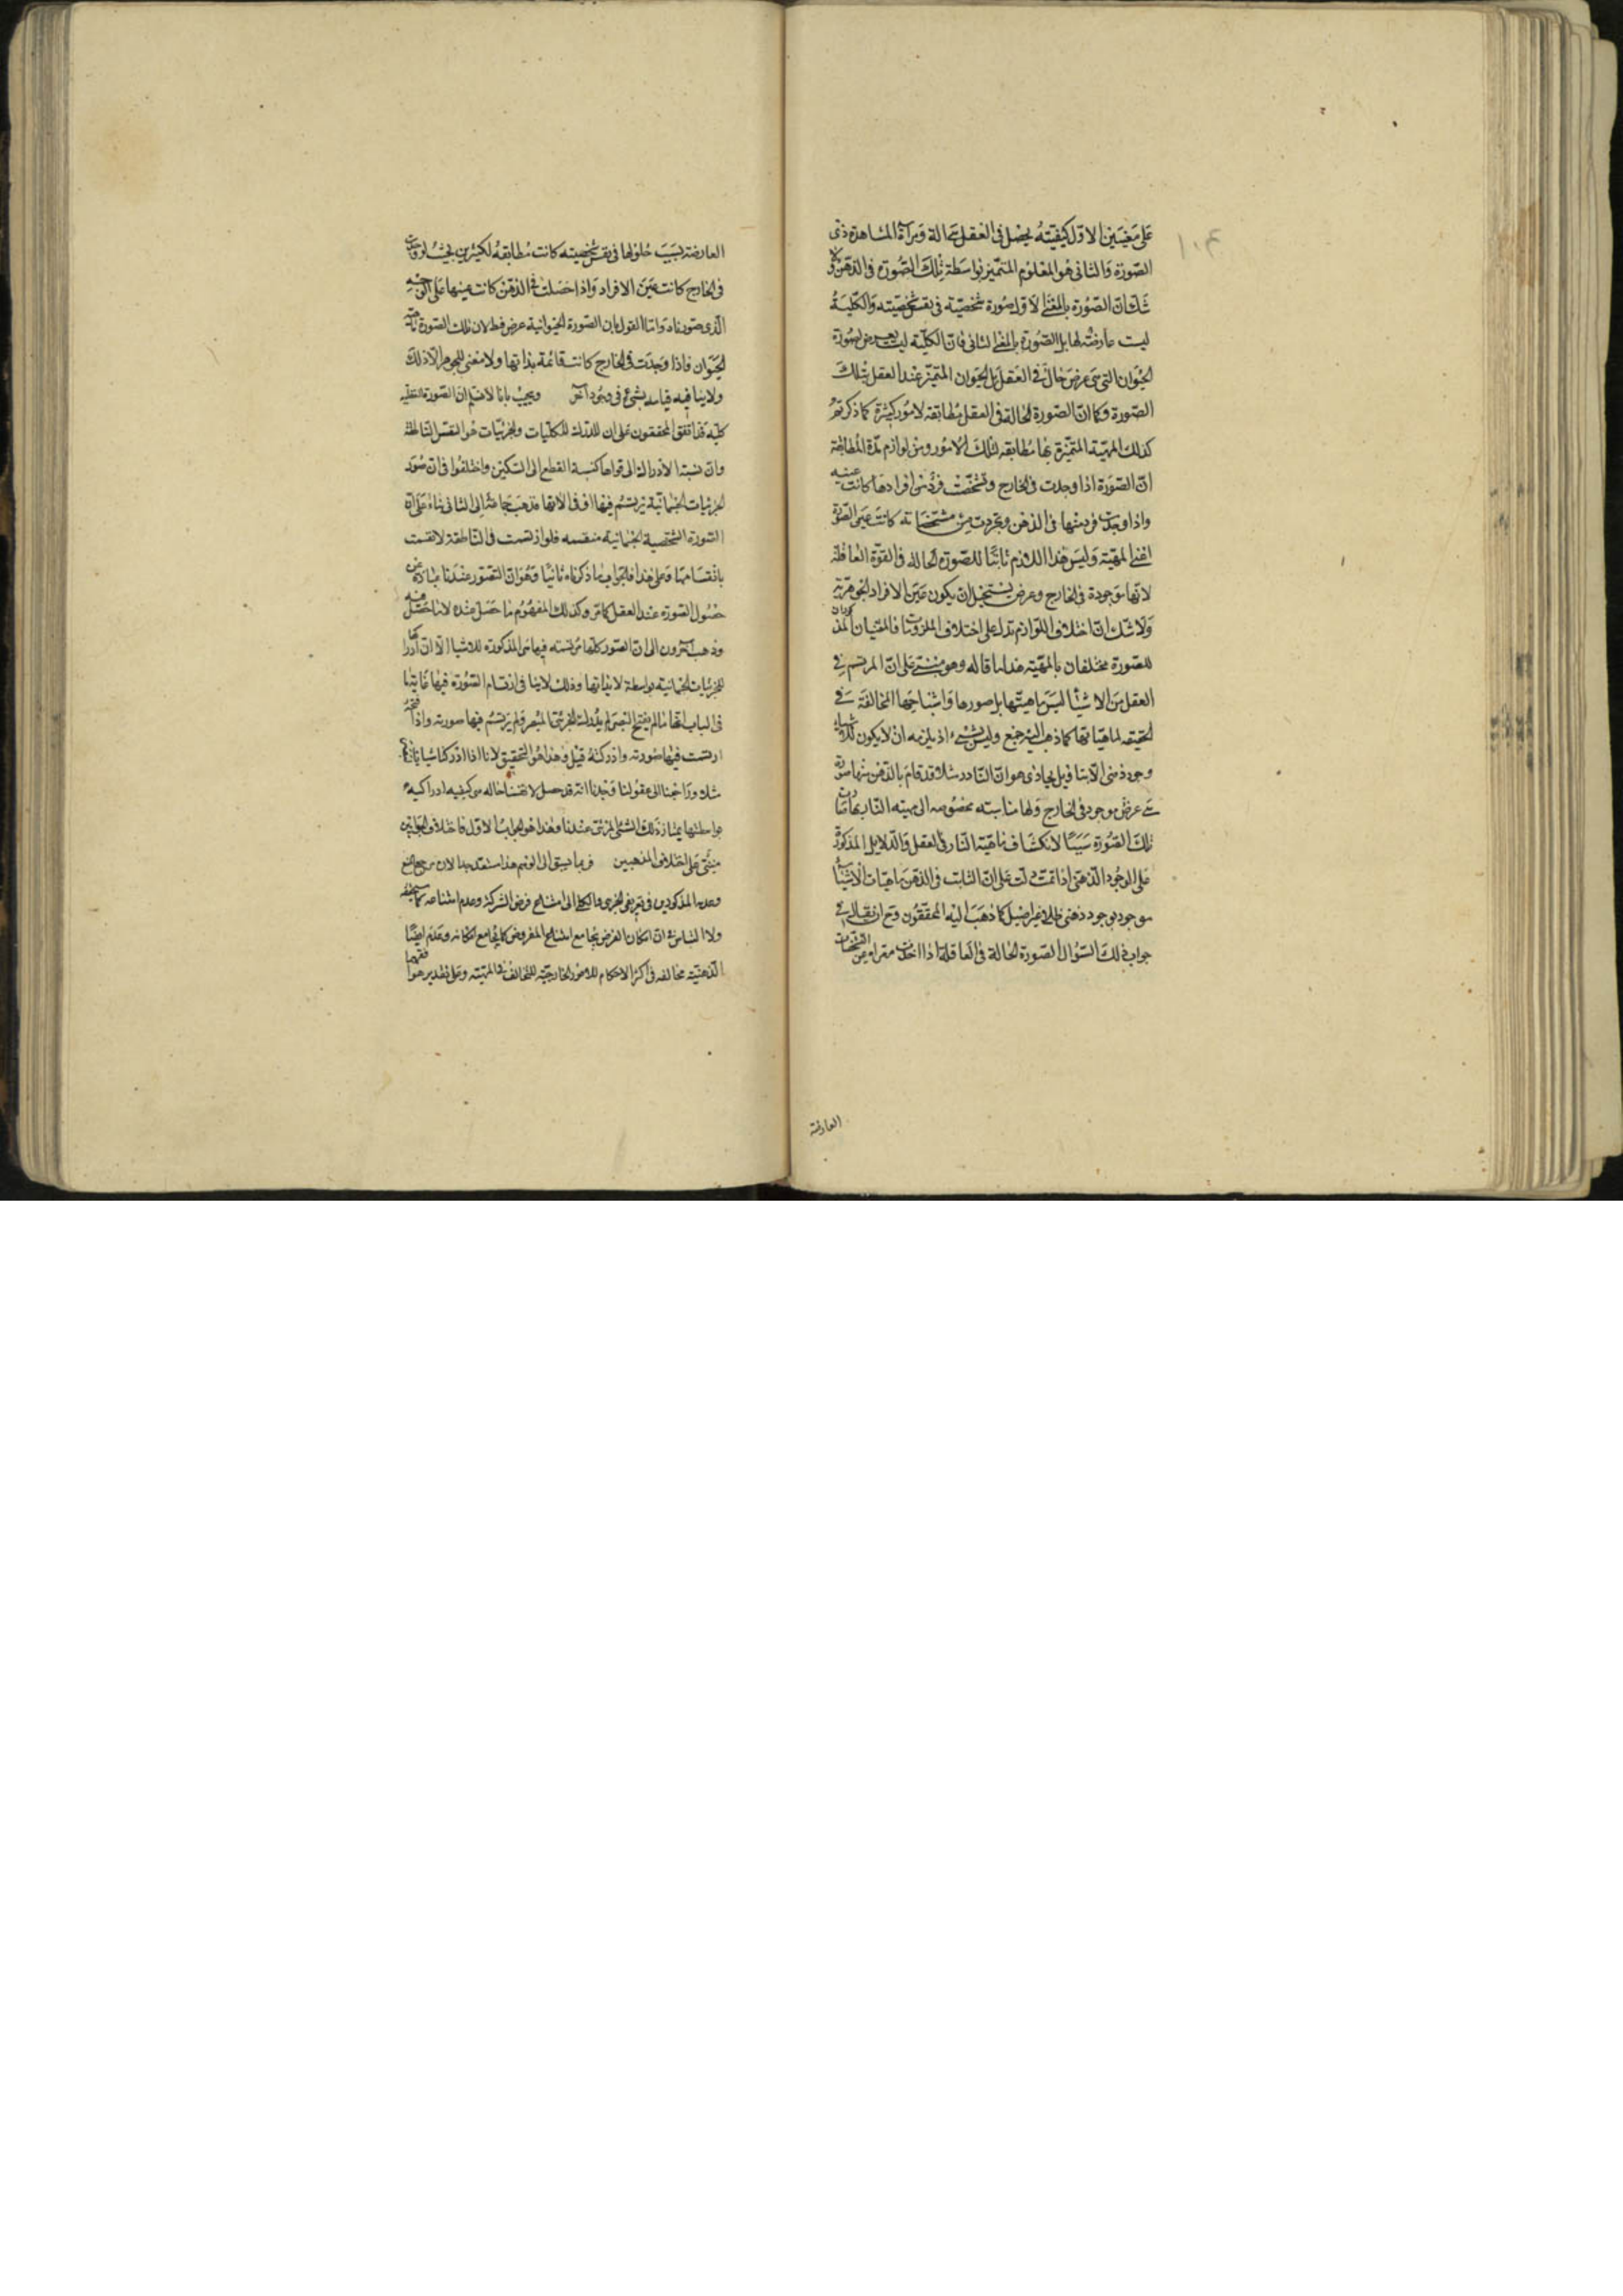 على معنيين الاول كيفية يحصل فى العقل هى الة ومرآة لمشاهدة ذى
الصورة والثانى هو المعلوم المتميز بواسطة تلك الصورة فى الذهن ولا
شك ان الصورة بالمعنى الاول صورة شخصية فى نفس شخصية والكلية
ليست عارضة لها بل الصورة بالمعنى الثانى فان الكلية ليست تعرض لصورة
الحيوان التى هى عرض حال فى العقل بل الحيوان المتميز عند العقل بتلك
الصورة وكما ان الصورة الحالة فى العقل مطابقة لامور كثيرة كما ذكرتم
كذلك المهية المتميزة بها مطابقة لتلك الامور ومن لوازم هذه المطابقة
ان الصورة اذا وجدت فى الخارج وتشخصت فرد من افرادها كانت عينه
واذا وجدت فرد منها فى الذهن وتجردت من مشخصاته كانت عين الصورة
اعنى المهية وليس هذا اللازم ثابتا للصورة الحالة فى القوة العاقلة
لانها موجودة فى الخارج وعرض يستحيل ان يكون عين الافراد الجوهرية
ولا شك ان اختلاف اللوازم تدل على اختلاف الملزومات فالمعنيان المذكوران
للصورة مختلفان بالمهية هذا ما قاله وهو مبنى على ان المرتسم فى
العقل من الاشياء ليس ماهيتها بل صورها واشباحها المخالفة فى
الحقيقة لماهياتها كما ذهب اليه جمع وليس بشىء اذ يلزمه ان لا يكون للاشياء
وجود ذهنى الا بتاويل مجازى هو ان النار مثلا قد قام بالذهن منها صورة
هى عرض موجود فى الخارج ولها مناسبة مخصوصة الى مهية النار بها صارت
تلك الصورة سببا لانكشاف ماهية النار فى العقل والدلايل المذكورة
على الوجود الذهنى اذا تمت دلت على ان الثابت فى الذهن ماهيات الاشياء
موجود بوجود ذهنى ظلى غير اصيل كما ذهب اليه المحققون وح ان يقال فى
جواب ذلك السؤال الصورة الحالة فى العاقلة اذا اخذت معراة عن التشخصات
العارضة
العارضة بسبب حلولها فى نفس شخصية كانت مطابقة لكثيرين بحيث لو وجدت
فى الخارج كانت عين الافراد واذا حصلت فى الذهن كانت عينها على الوجه
الذى صورناه واما القول بان الصورة الحيوانية عرض فبط لان تلك الصورة ماهية
الحيوان فاذا وجدت فى الخارج كانت قائمة بذاتها ولا معنى للجوهر الا ذلك
ولا ينافيه قيامه بشىء فى وجود آخر ويجيب بانا لا نسلم ان الصورة العقلية
كلية قد اتفق المحققون على ان المدرك للكليات والجزئيات هو النفس الناطقة
وان نسبة الادراك الى قواها كنسبة القطع الى السكين واختلفوا فى ان صور
الجزئيات الجسمانية يرتسم فيها او فى الاتها فذهب جماعة الى الثانى بناء على ان
الصورة الشخصية الجسمانية منقسمة فلو ارتسمت فى الناطقة لانقسمت
بانقسامها وعلى هذا فالجواب ما ذكرناه ثانيا وهو ان التصور عندنا عبارة عن
حصول الصورة عند العقل كما مر وكذلك المفهوم ما حصل عنده لا ما حصل فيه
وذهب آخرون الى ان الصور كلها مرتسمة فيها هى المدركة للاشياء الا ان ادراكها
للجزئيات الجسمانية بواسطة لا بذاتها وذلك لا ينافى ارتسام الصورة فيها غاية ما
فى الباب انها ما لم يفتح البصر لم يدرك الجزئى المبصر ولم يرتسم فيها صورته واذا فتحه
ارتسمت فيها صورته وادركته قيل وهذا هو التحقيق لانا اذا ادركنا
مثلا وراجعنا الى عقولنا وجدنا انه قد حصل لانفسنا حالة هى كيفية ادراكية
بواسطتها يمتاز ذلك الشىء الجزئى عندنا وهذا هو الجواب الاول فاختلاف الجوابين
مبنى على اختلاف المذهبين وربما يسبق الى الوهم هذا استبعد جدا لان مرجع المنع
وعدمه المذكورين فى تعريفى الجزئى والكلى الى امتناع فرض الشركة وعدم امتناعه كما
ولا التباس فى ان امكان الفرض يجامع امتناع المفروض كما يجامع امكانه وعدم ايضا
الذهنية مخالفة فى اكثر الاحكام للامور الخارجية للتخالف فى المهية وعلى تقدير